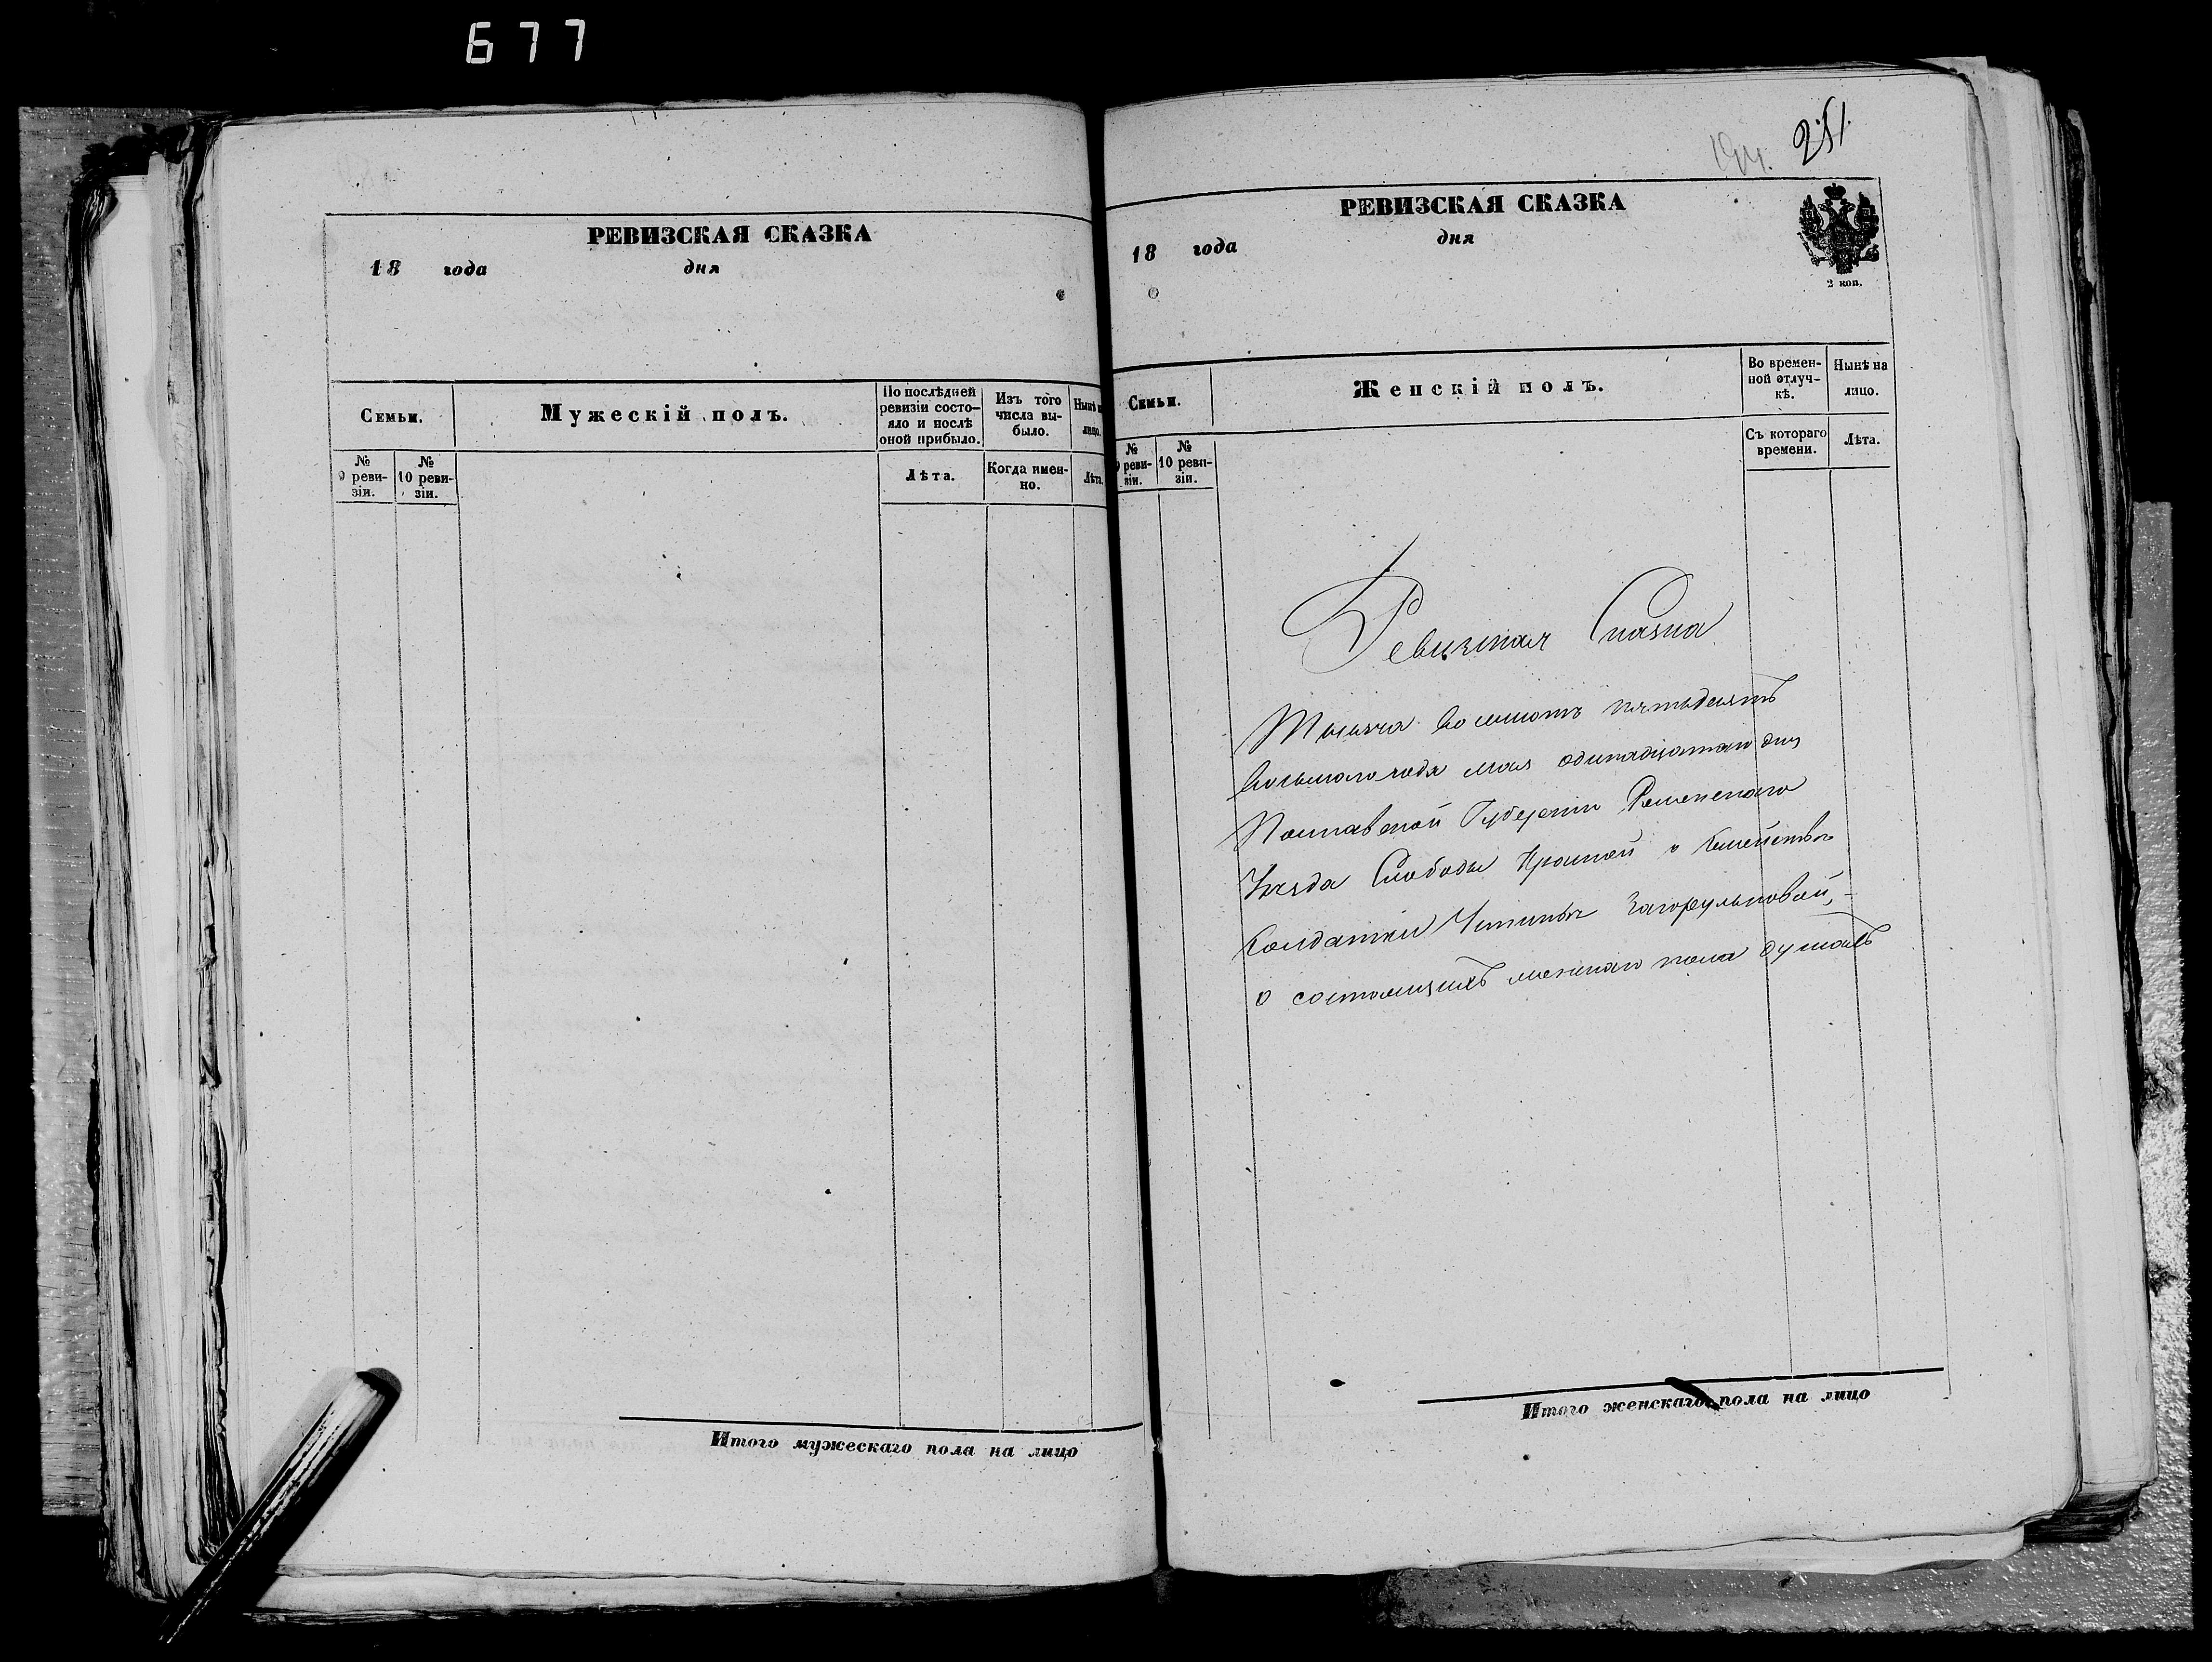 677
РЕВИЗСКАЯ СКАЗКА
18 года дня
Семьи.
Мужескій полъ.
По послѣдней ревизіи состо-
яло и послѣ оной прибыло.
Изъ того числа вы-
было.
Нынѣ
лицо.
№ 9 реви-
зіи.
№ 10 реви-
зіи.
Лѣта.
Когда имен-
но.
Лѣта.
Итого мужескаго пола на лицо
251.
РЕВИЗСКАЯ СКАЗКА
18 года дня
2 коп.
Семьи.
Женскій полъ.
Во времен-
ной отлуч-
кѣ.
Нынѣ на
лицо.
№ реви-
зіи.
№ 10 реви-
зіи.
Съ котораго
времени.
Лѣта.
Ревизская Сказка
Тысяча восемсотъ пятьдесятъ
восьмого года мая одинадцатаго дня
Полтавской Губерніи Роменскаго
Уѣзда Слободы о Семействѣ
Солдатки Устиньи Загорульковой,
о состоящихъ женскаго пола душахъ
Итого женскаго пола на лицо